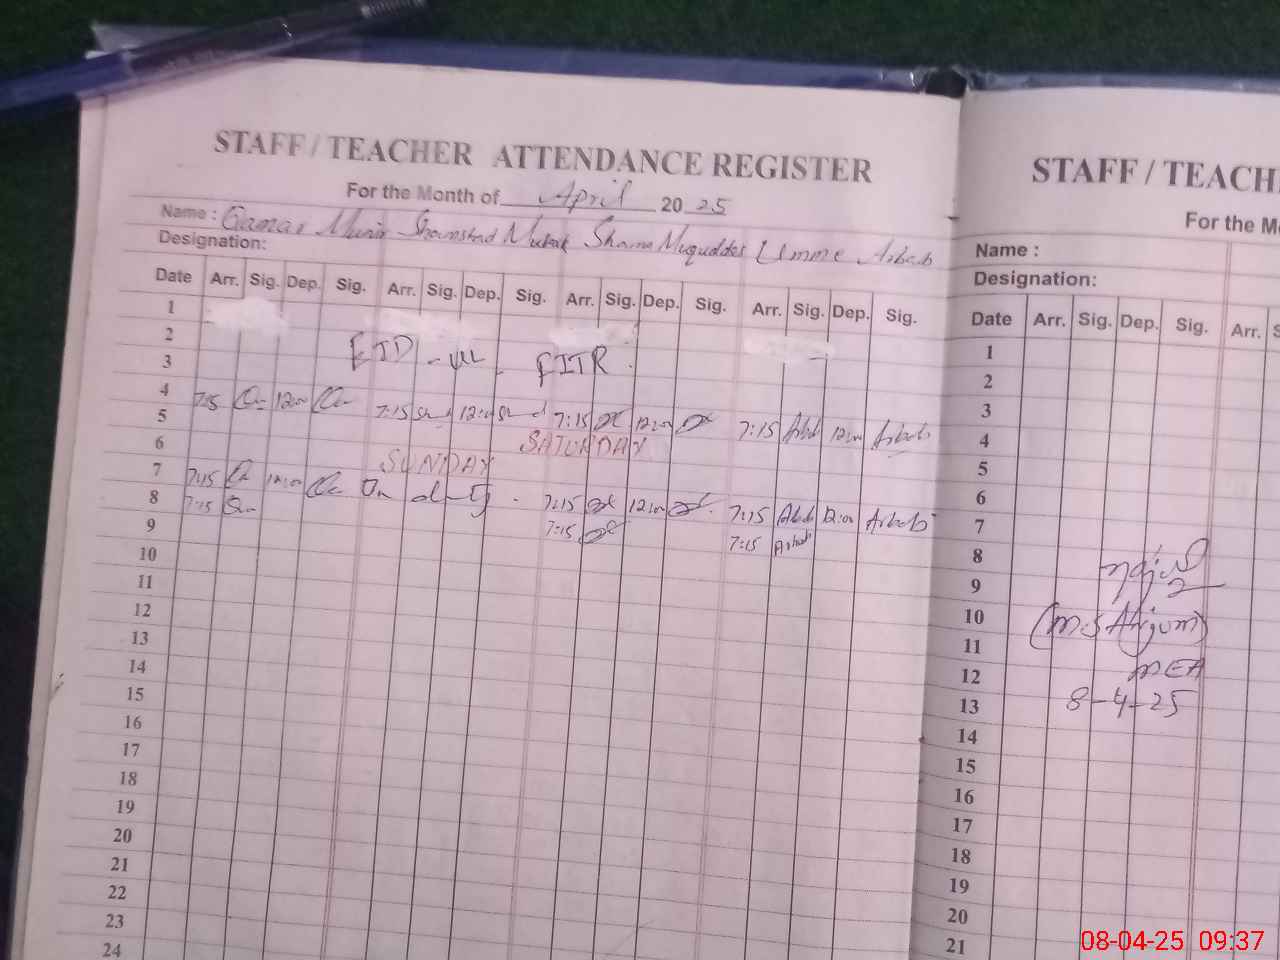 STAFF / TEACHER ATTENDANCE REGISTER
For the Month of April 2025
Name : Qamar Munir Shamshad Mubarak Shama Muquddas Umme Arbab
Designation:
Date Arr. Sig. Dep. Sig. Arr. Sig. Dep. Sig. Arr. Sig. Dep. Sig. Arr. Sig. Dep. Sig.
1
2
3 EID - UL - FITR.
4 7:15 12:00 7:15 12:00 7:15 12:00 7:15 Arbab 12:00 Arbab
5 SATURDAY
6 SUNDAY
7 7:15 12:00 On duty. 7:15 12:00 7:15 Arbab 12:00 Arbab
8 7:15 7:15 7:15 Arbab
9
10
11
12
13
14
15
16
17
18
19
20
21
22
23
24
STAFF / TEACH
For the M
Name :
Designation:
Date Arr. Sig. Dep. Sig. Arr. S
1
2
3
4
5
6
7
8
9
10 (M.S Anjum)
11
12 MEA
13 8-4-25
14
15
16
17
18
19
20
21
08-04-25 09:37